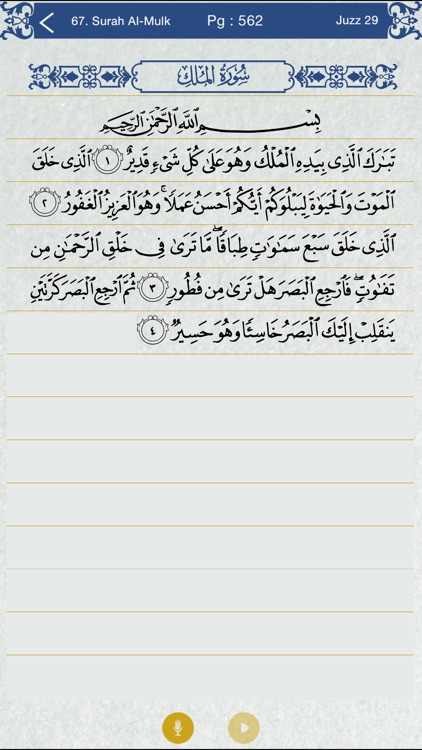 67. Surah Al-Mulk Pg : 562 Juzz 29
سُورَةُ المُلكِ
بِسْمِ ٱللَّهِ ٱلرَّحْمَٰنِ ٱلرَّحِيمِ
تَبَٰرَكَ ٱلَّذِى بِيَدِهِ ٱلْمُلْكُ وَهُوَ عَلَىٰ كُلِّ شَىْءٍ قَدِيرٌ ١ ٱلَّذِى خَلَقَ
ٱلْمَوْتَ وَٱلْحَيَوٰةَ لِيَبْلُوَكُمْ أَيُّكُمْ أَحْسَنُ عَمَلًا ۚ وَهُوَ ٱلْعَزِيزُ ٱلْغَفُورُ ٢
ٱلَّذِى خَلَقَ سَبْعَ سَمَٰوَٰتٍ طِبَاقًا ۖ مَّا تَرَىٰ فِى خَلْقِ ٱلرَّحْمَٰنِ مِن
تَفَٰوُتٍ ۖ فَٱرْجِعِ ٱلْبَصَرَ هَلْ تَرَىٰ مِن فُطُورٍ ٣ ثُمَّ ٱرْجِعِ ٱلْبَصَرَ كَرَّتَيْنِ
يَنقَلِبْ إِلَيْكَ ٱلْبَصَرُ خَاسِئًا وَهُوَ حَسِيرٌ ٤